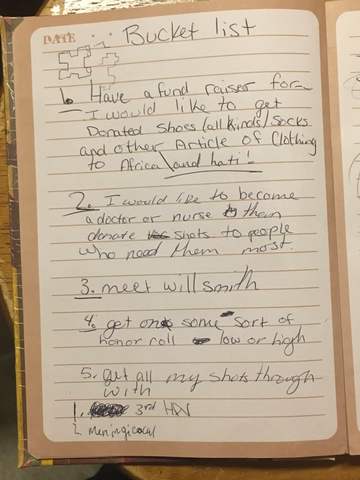 DATE Bucket list
1. Have a fund raiser for
I would like to get
Donated shoes (all kinds) socks
and other Article of Clothing
to Africa \and hati!
2. I would like to become
a doctor or nurse then
donate shots to people
who need them most.
3. meet will smith
4. get some sort of
honor roll low or high
5. get all my shots through
with
1. 3rd
2. meningicocal